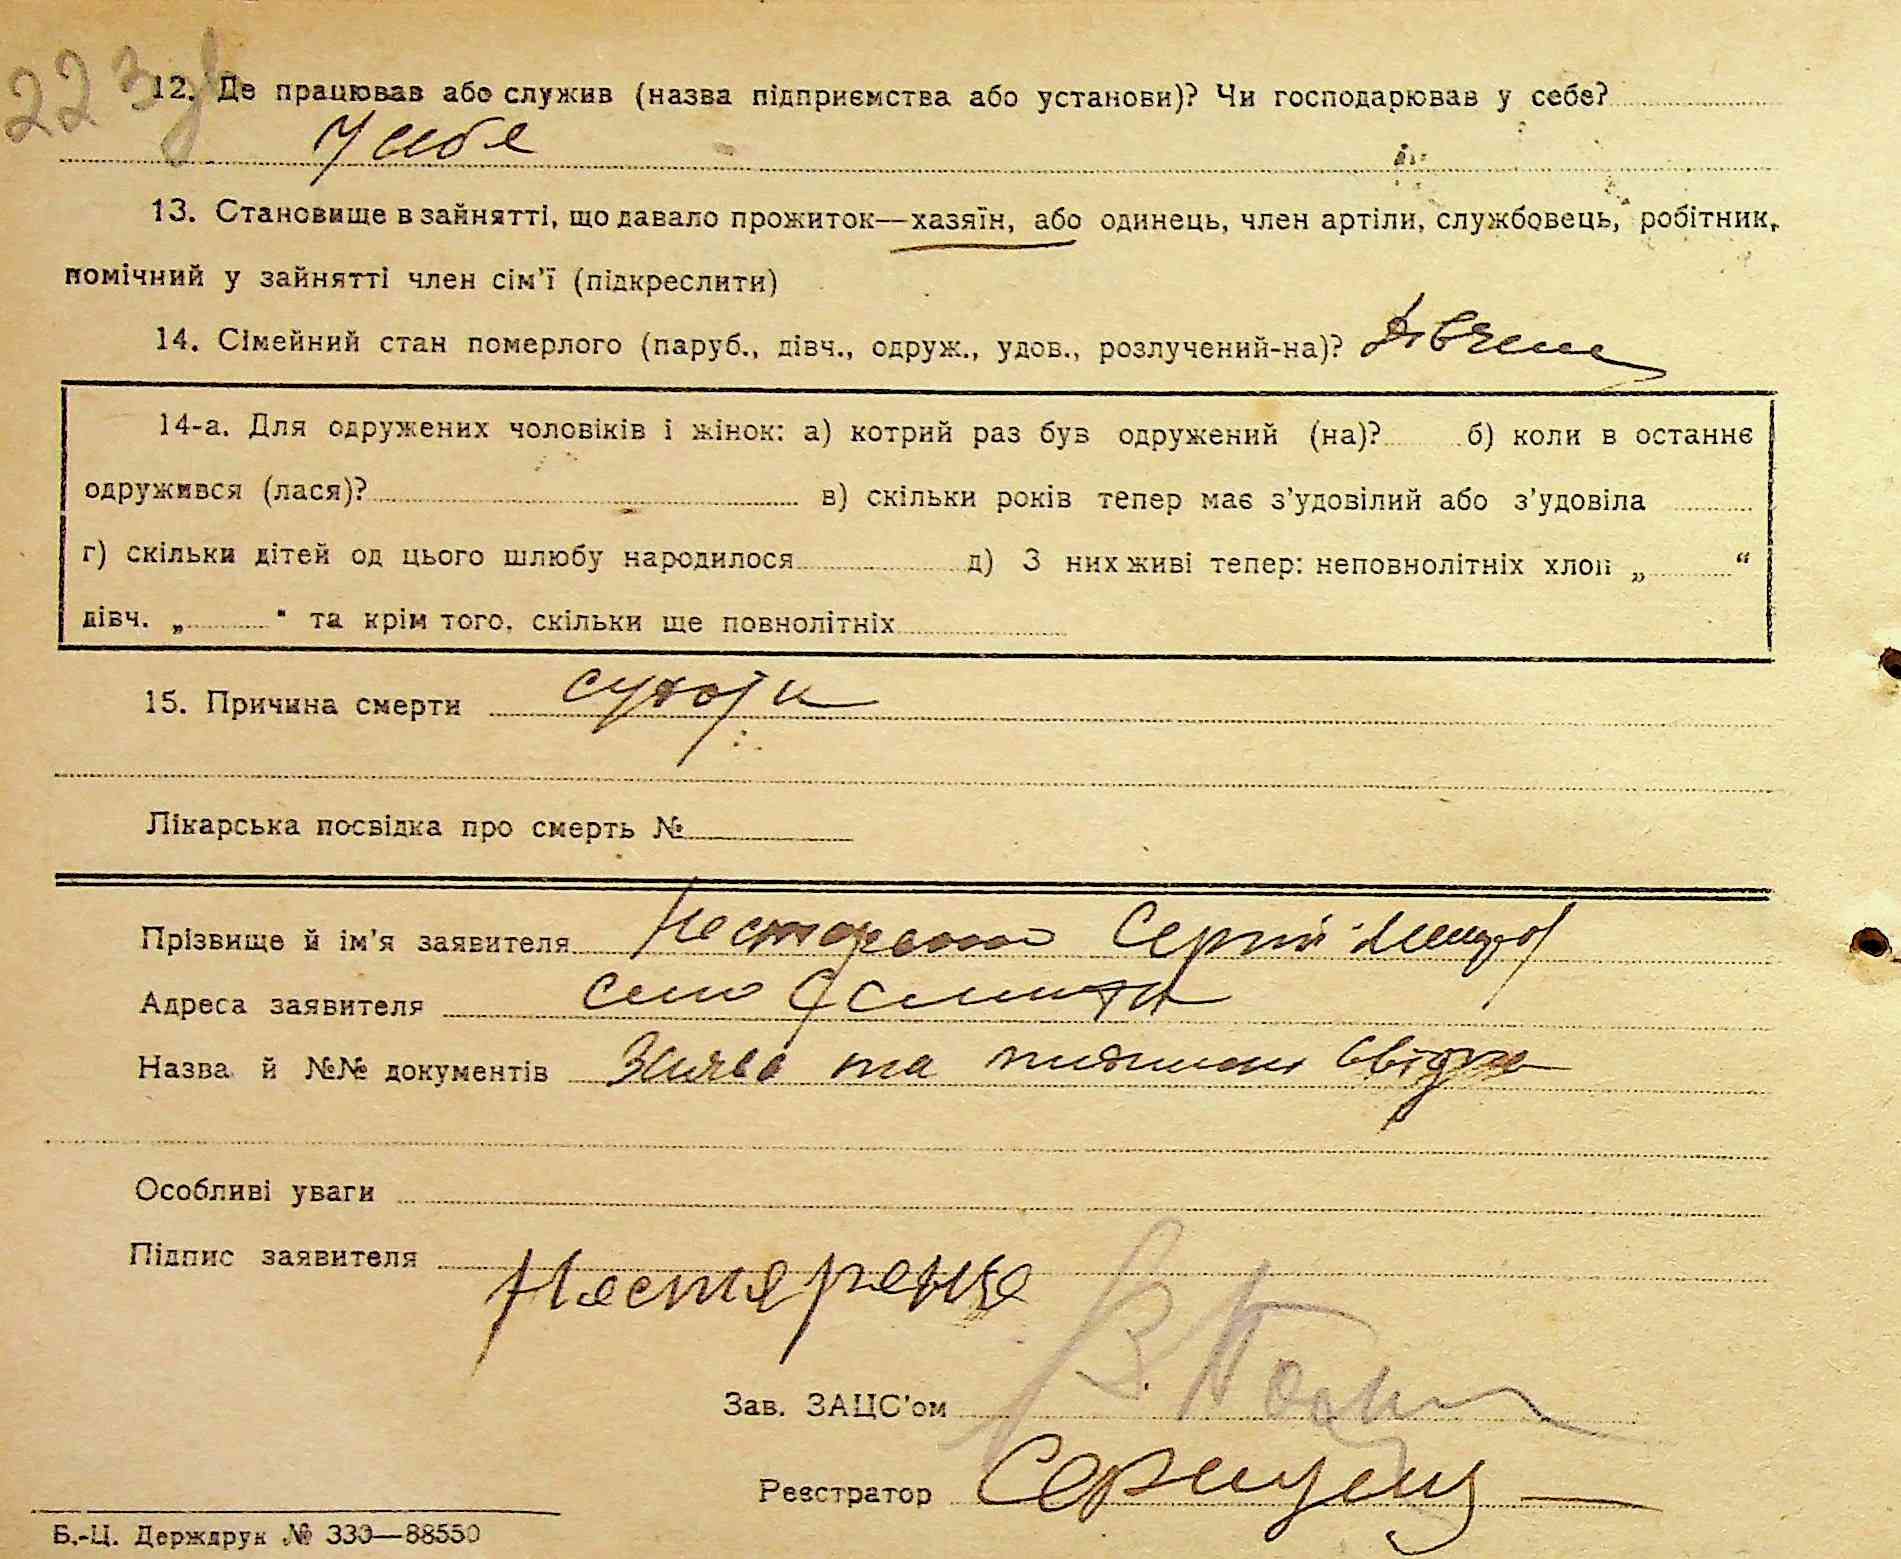 22 зв
12. Де працював або служив (назва підприємства або установи)? Чи господарював у себе?
У себе
13. Становище в зайнятті, що давало прожиток—хазяїн, або одинець, член артіли, службовець, робітник,
помічний у зайнятті член сім'ї (підкреслити)
14. Сімейний стан померлого (паруб., дівч., одруж., удов., розлучений-на)?
14-а. Для одружених чоловіків і жінок: а) котрий раз був одружений (на)? б) коли в останнє
одружився (лася)? в) скільки років тепер має з'удовілий або з'удовіла
г) скільки дітей од цього шлюбу народилося д) З них живі тепер: неповнолітніх хлоп „ “
дівч. „ “ та крім того, скільки ще повнолітніх
15. Причина смерти сухоти
Лікарська посвідка про смерть №
Прізвище й ім'я заявителя Нестеренко Сергій
Адреса заявителя село
Назва й №№ документів Заява та
Особливі уваги
Підпис заявителя Нестеренко
Зав. ЗАЦС'ом
Реєстратор
Б.-Ц. Держдрук № 330—88550